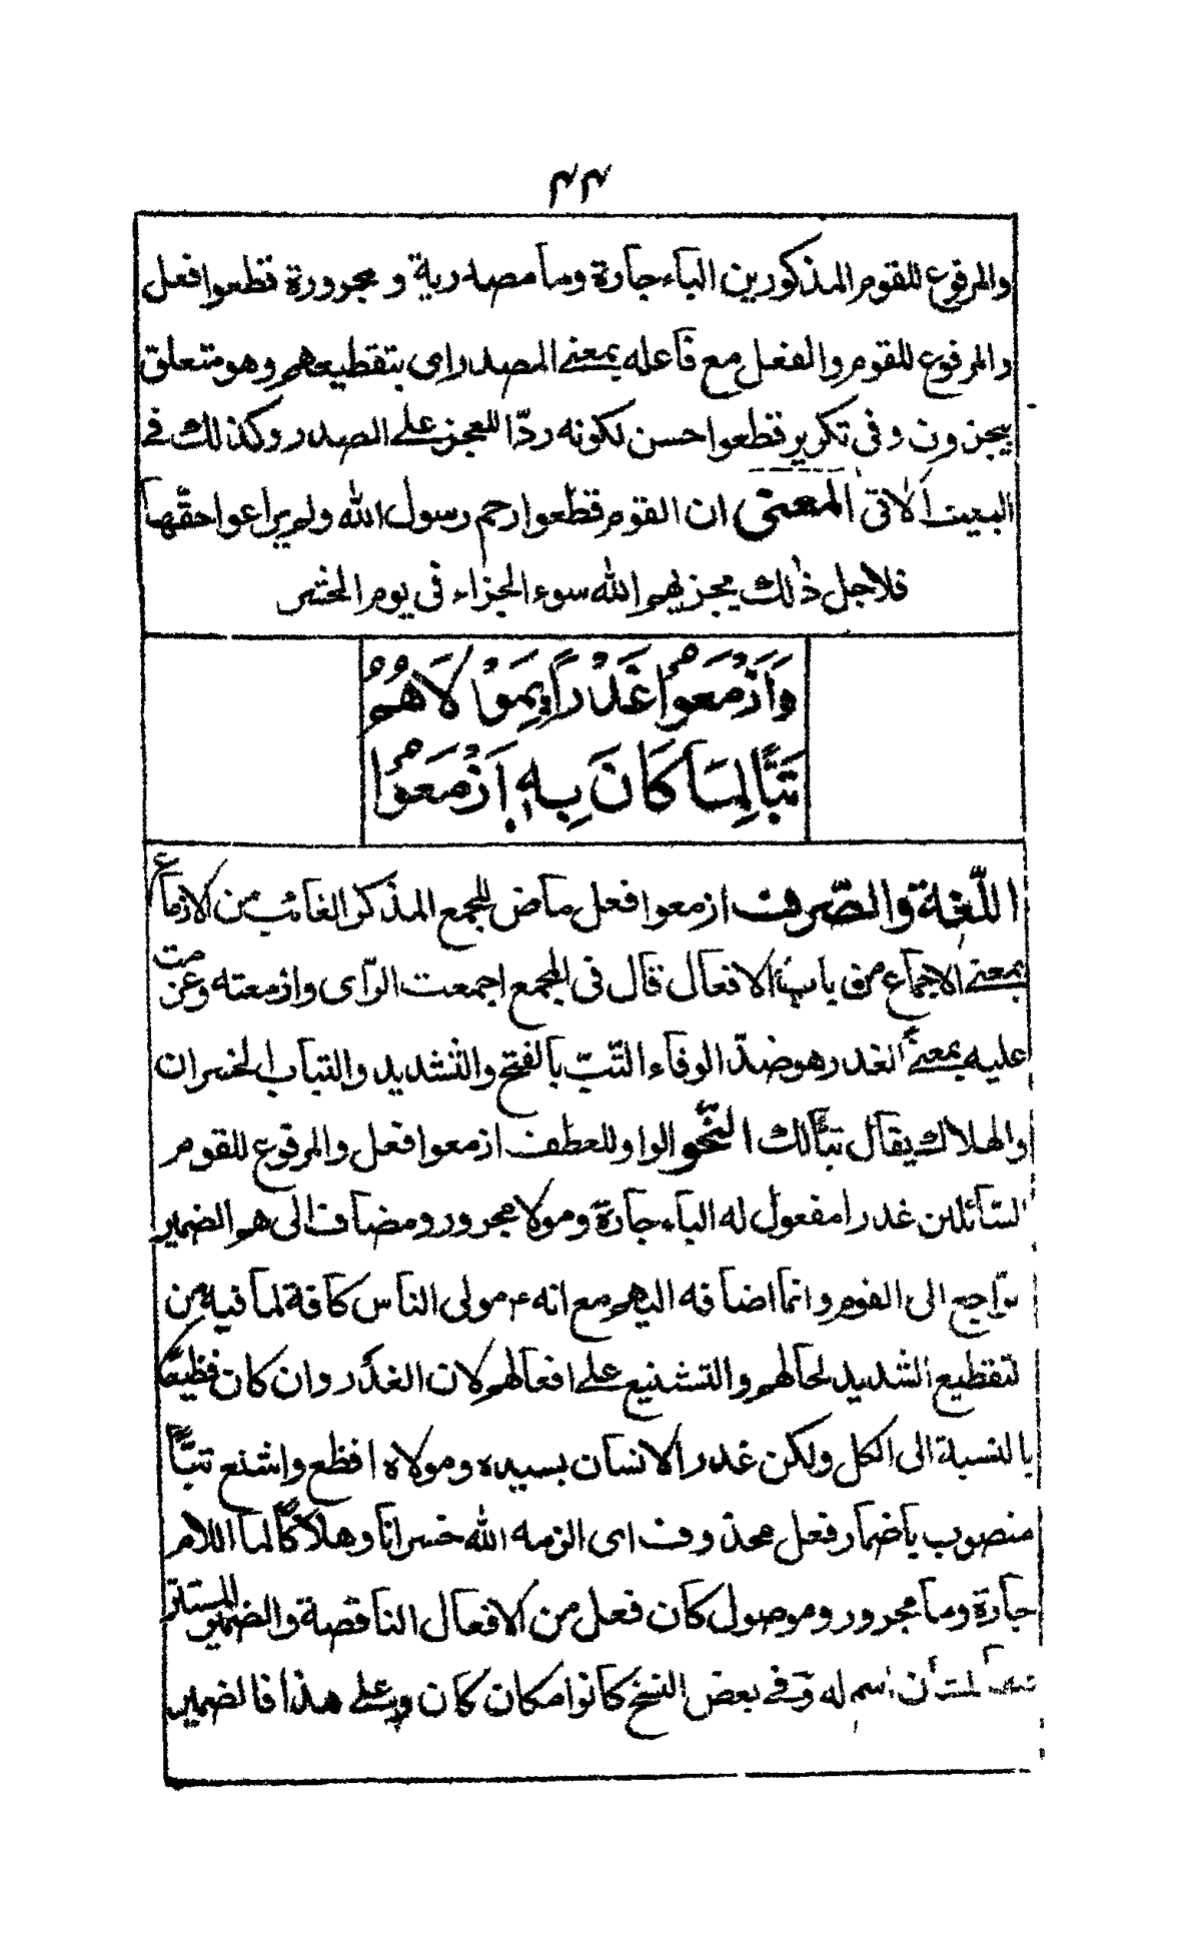 ٤٤
والمرفوع للقوم المذكورين الباء جارة وما مصدرية و مجرورة قطعوا فعل
والمرفوع للقوم والفعل مع فاعله بمعنى المصدر اى بتقطيعهم وهو متعلق
بيجزون وفى تكرير قطعوا حسن لكونه ردّا للعجز على الصدر وكذلك فى
البيت الاتى المعنى ان القوم قطعوا رحم رسول الله ولم يراعوا حقّها
فلاجل ذلك يجزيهم الله سوء الجزاء فى يوم المحشر
وَاَزْمَعُوْا غَدْرًا بِمَوْلَاهُمُ
تَبًّا لِمَا كَانَ بِهٖ اَزْمَعُوْا
اللّغة والصّرف ازمعوا فعل ماض للجمع المذكر الغائب من الازماع
بمعنى الاجماع من باب الافعال قال فى المجمع اجمعت الرّاى وازمعته وعزمت
عليه بمعنى الغدر هو ضدّ الوفاء التّبّ بالفتح والتشديد والتباب الخسران
والهلاك يقال تبّا لك النّحو الواو للعطف ازمعوا فعل والمرفوع للقوم
السّائلين غدرا مفعول له الباء جارة ومولا مجرور ومضاف الى هم الضمير
راجع الى القوم وانما اضافه اليهم مع انه ع مولى الناس كافة لما فيه من
التفظيع الشديد لحالهم والتشنيع على افعالهم لان الغدر وان كان فظيعًا
بالنسبة الى الكل ولكن غدر الانسان بسيده ومولاه افظع واشنع تبّاً
منصوب باضمار فعل محذوف اى الزمه الله خسرانا وهلاكًا لما اللام
جارة وما مجرور وموصول كان فعل من الافعال الناقصة والضمير المستتر
للشأن اسم له وفى بعض النسخ كانوا مكان كان وعلى هذا فالضمير